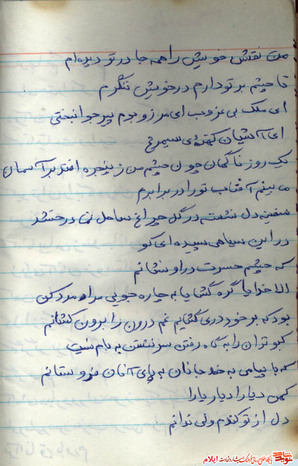 من نقش خویش را همه جا در تو دیده ام
تا چشم بر تو دارم در خویش ننگرم
ای ملک بی غروب ای مرز و بوم پیر جوانبختی
ای آشیان کهنه ی سیمرغ
یک روز ناگهان چون چشم من ز پنجره افتد بر آسمان
می بینم آفتاب تو را در برابرم
سفینه دل نشست در گل چراغ ساحل نمی درخشد
در این سیاهی سپیده ای کو
که چشم حسرت در او نشانم
الا خدایا گره گشایا به چاره جویی مرا مدد کن
بود که بر خود دری گشایم غم درون را برون کشانم
کبوتران را به گاه رفتن سر نشستن به بام من نیست
که تا پیامی به خط جانان به پای آنان فرو ستانم
کهن دیارا دیار یارا
دل از تو کندم ولی ندانم
ایلام